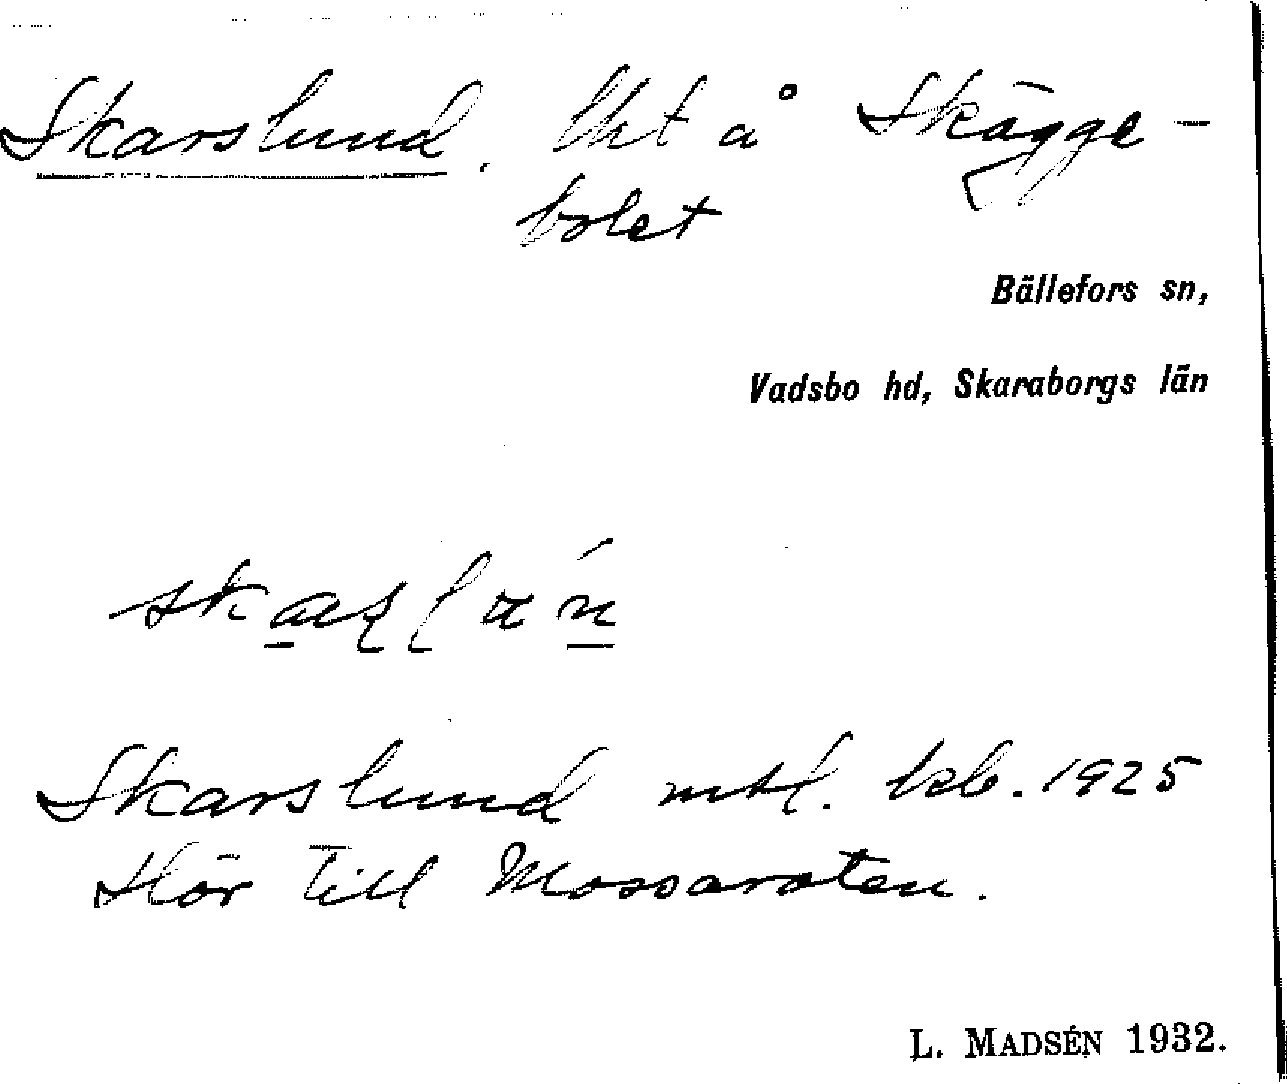 Skarslund. lht å Skägge-
bolet
Bällefors sn,
Vadsbo hd, Skaraborgs län
Skarslund mtl. kb. 1925
Hör till Mossaroten.
L. MADSÉN 1932.